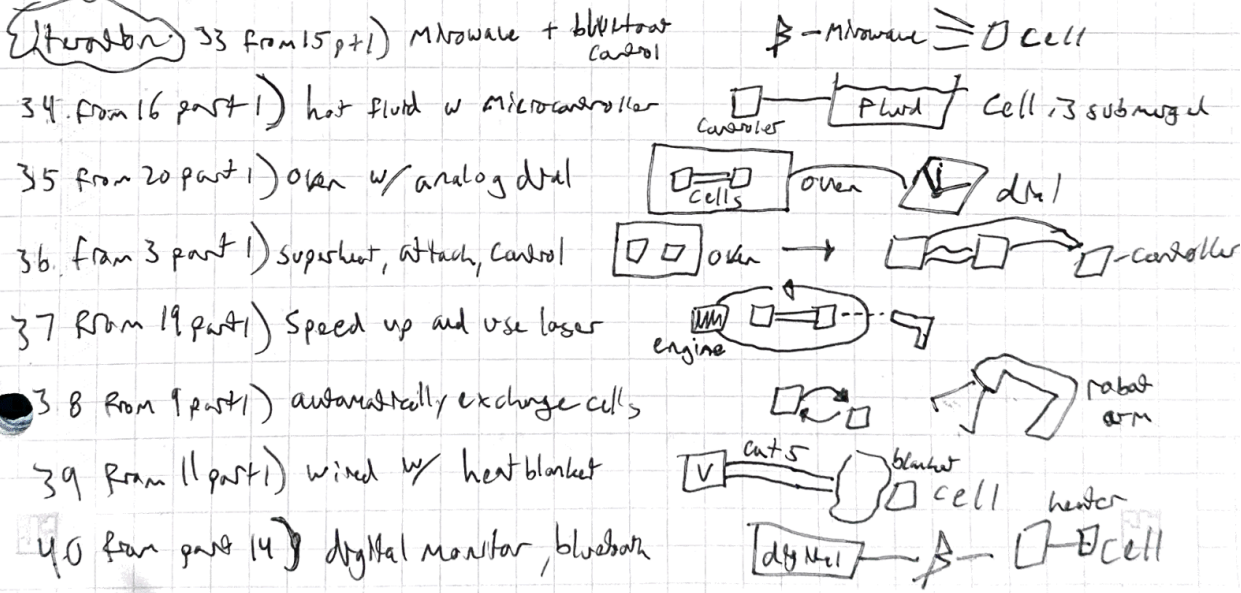 Iteration 33 from 15 pt 1) Microwave + bluetooth control B - Microwave cell
34. from 16 part 1) hot fluid w Microcontroller Controller Fluid Cell is submerged
35 from 20 part 1) oven w/ analog dial cells oven dial
36. from 3 part 1) superheat, attach, control oven → -controller
37 From 19 part 1) Speed up and use laser engine
38 From 9 part 1) automatically exchange cells robot arm
39 From 11 part 1) wired w/ heat blanket V cat 5 blanket cell
40 from part 14) digital monitor, bluetooth digital B heater cell